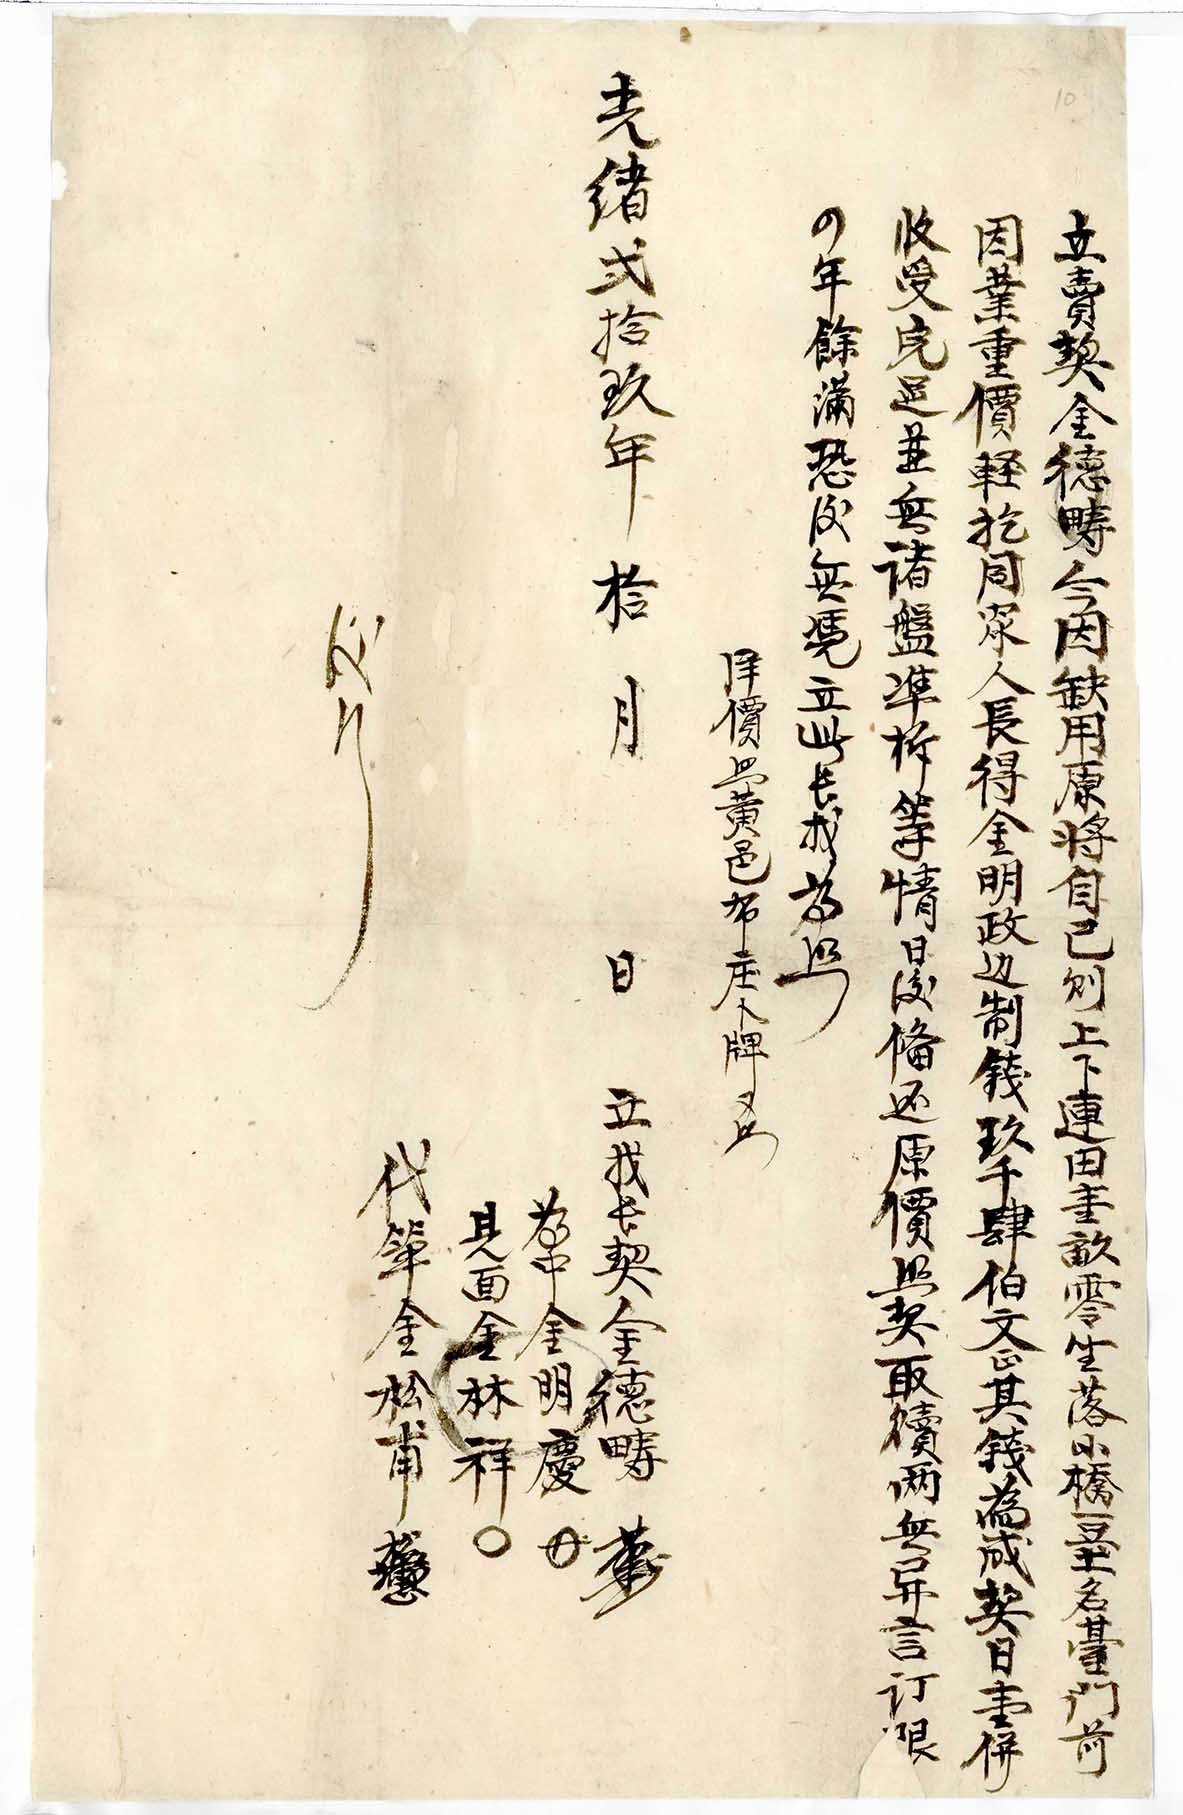 立賣契金德疇今因缺用原将自己則上下連田壹畝零坐落小橋𡋾名臺門前
因業重價軽托同眾人長得金明政边制錢玖千肆伯文正其錢為成契日壹併
收受完足並無诸盤準折等情日後偹还原價照契取贖両無异言订限
四年餘滿恐後無憑立此长找為照
洋價照黃邑布庄人牌又照
光绪弍拾玖年拾月日立找长契金德疇
為中金明慶
見面金林祥〇
代筆金松甫
10